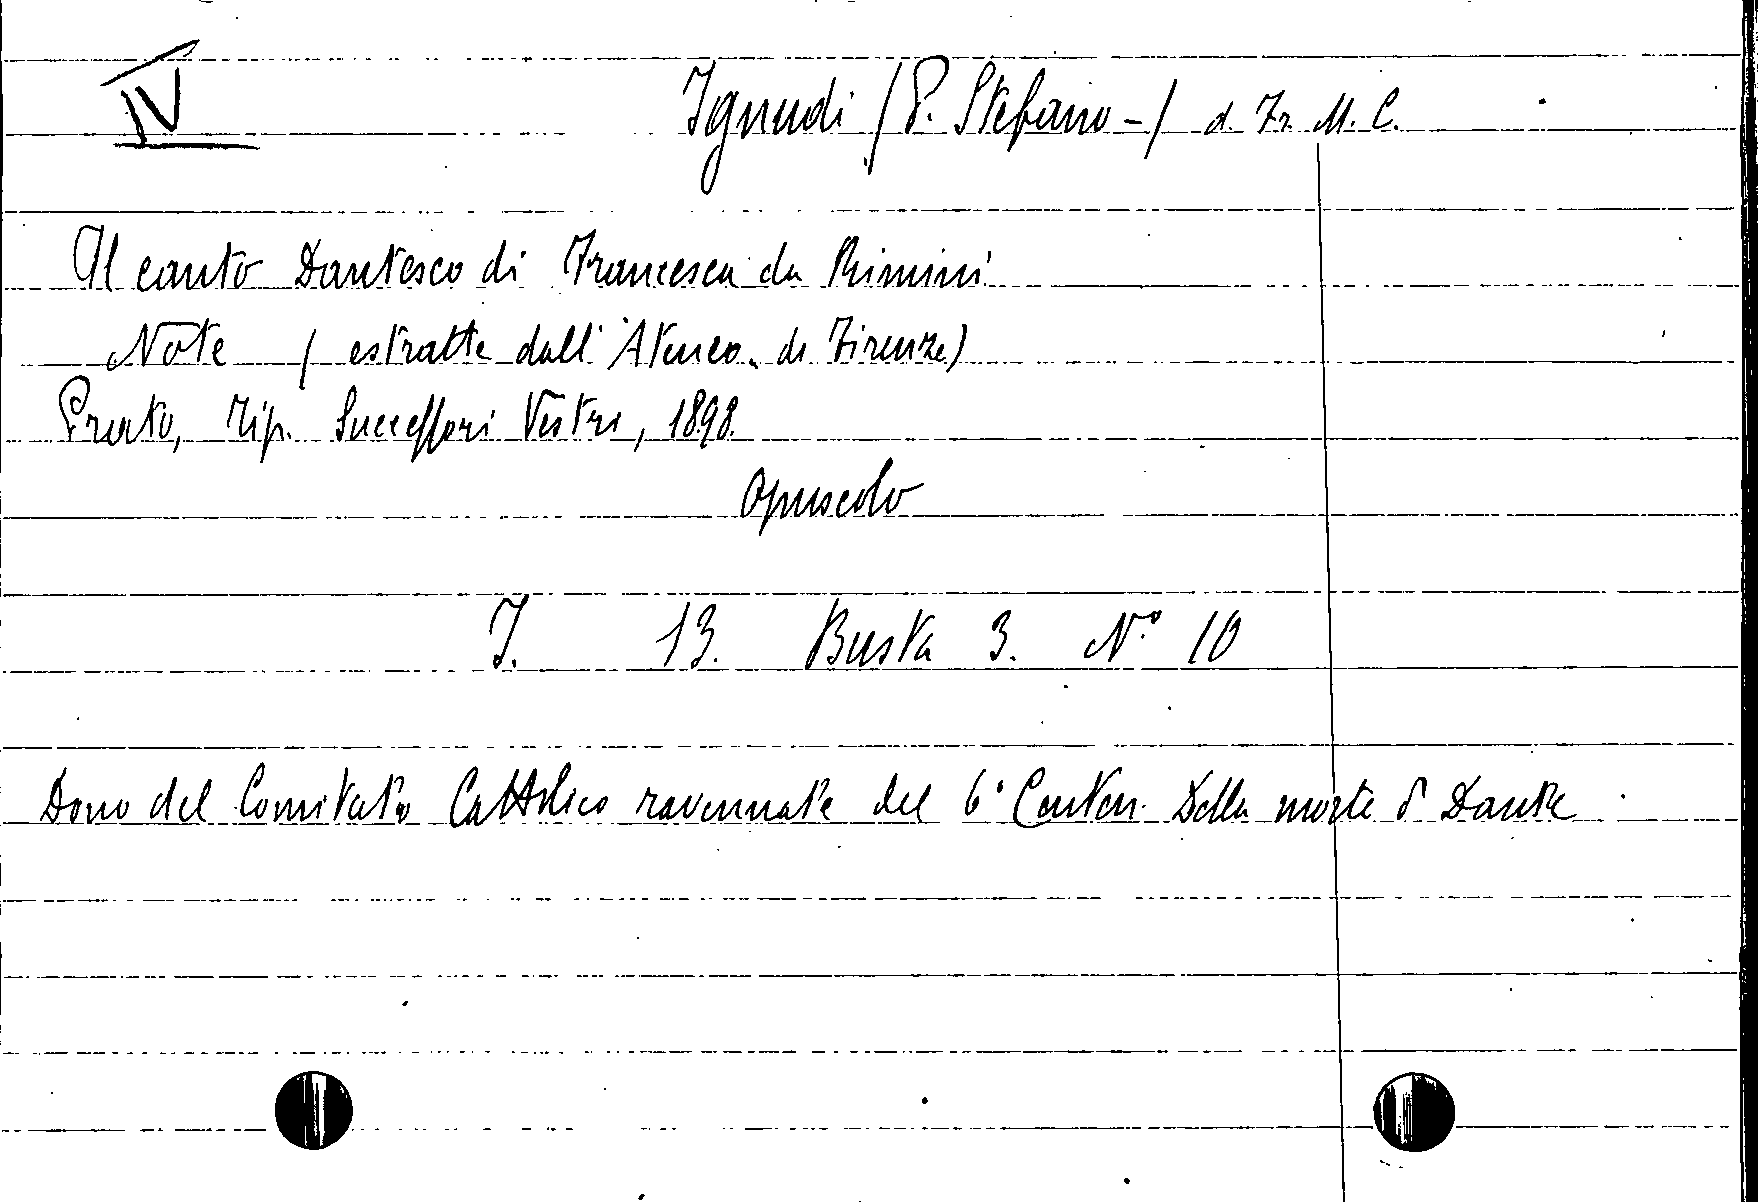 IV
Ignudi (P. Stefano-) d. Fr. M. C.
Il canto Dantesco di Francesca da Rimini
Note (estratte dall'Ateneo di Firenze)
Prato, Tip. Successori Vestri, 1898.
Opuscolo
I. 13. Busta 3. N.º 10
Dono del Comitato Cattolico ravennate del 6º Centen. Della morte di Dante